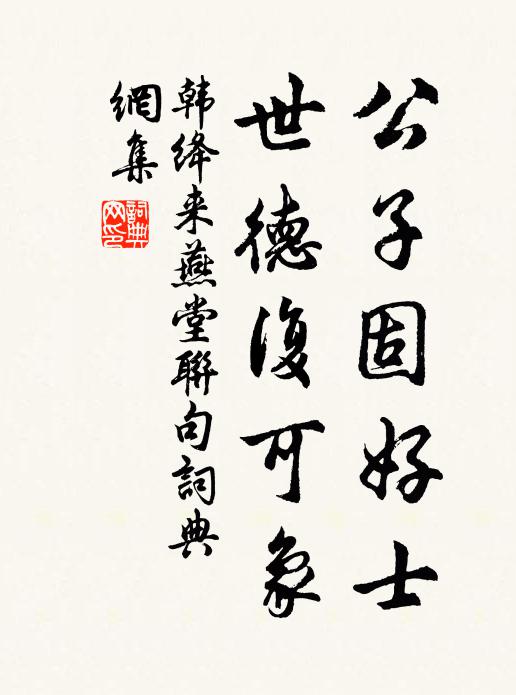 公子固好士
世德復可象
韩绛来燕堂聯句詞典
網集
詞典
网印